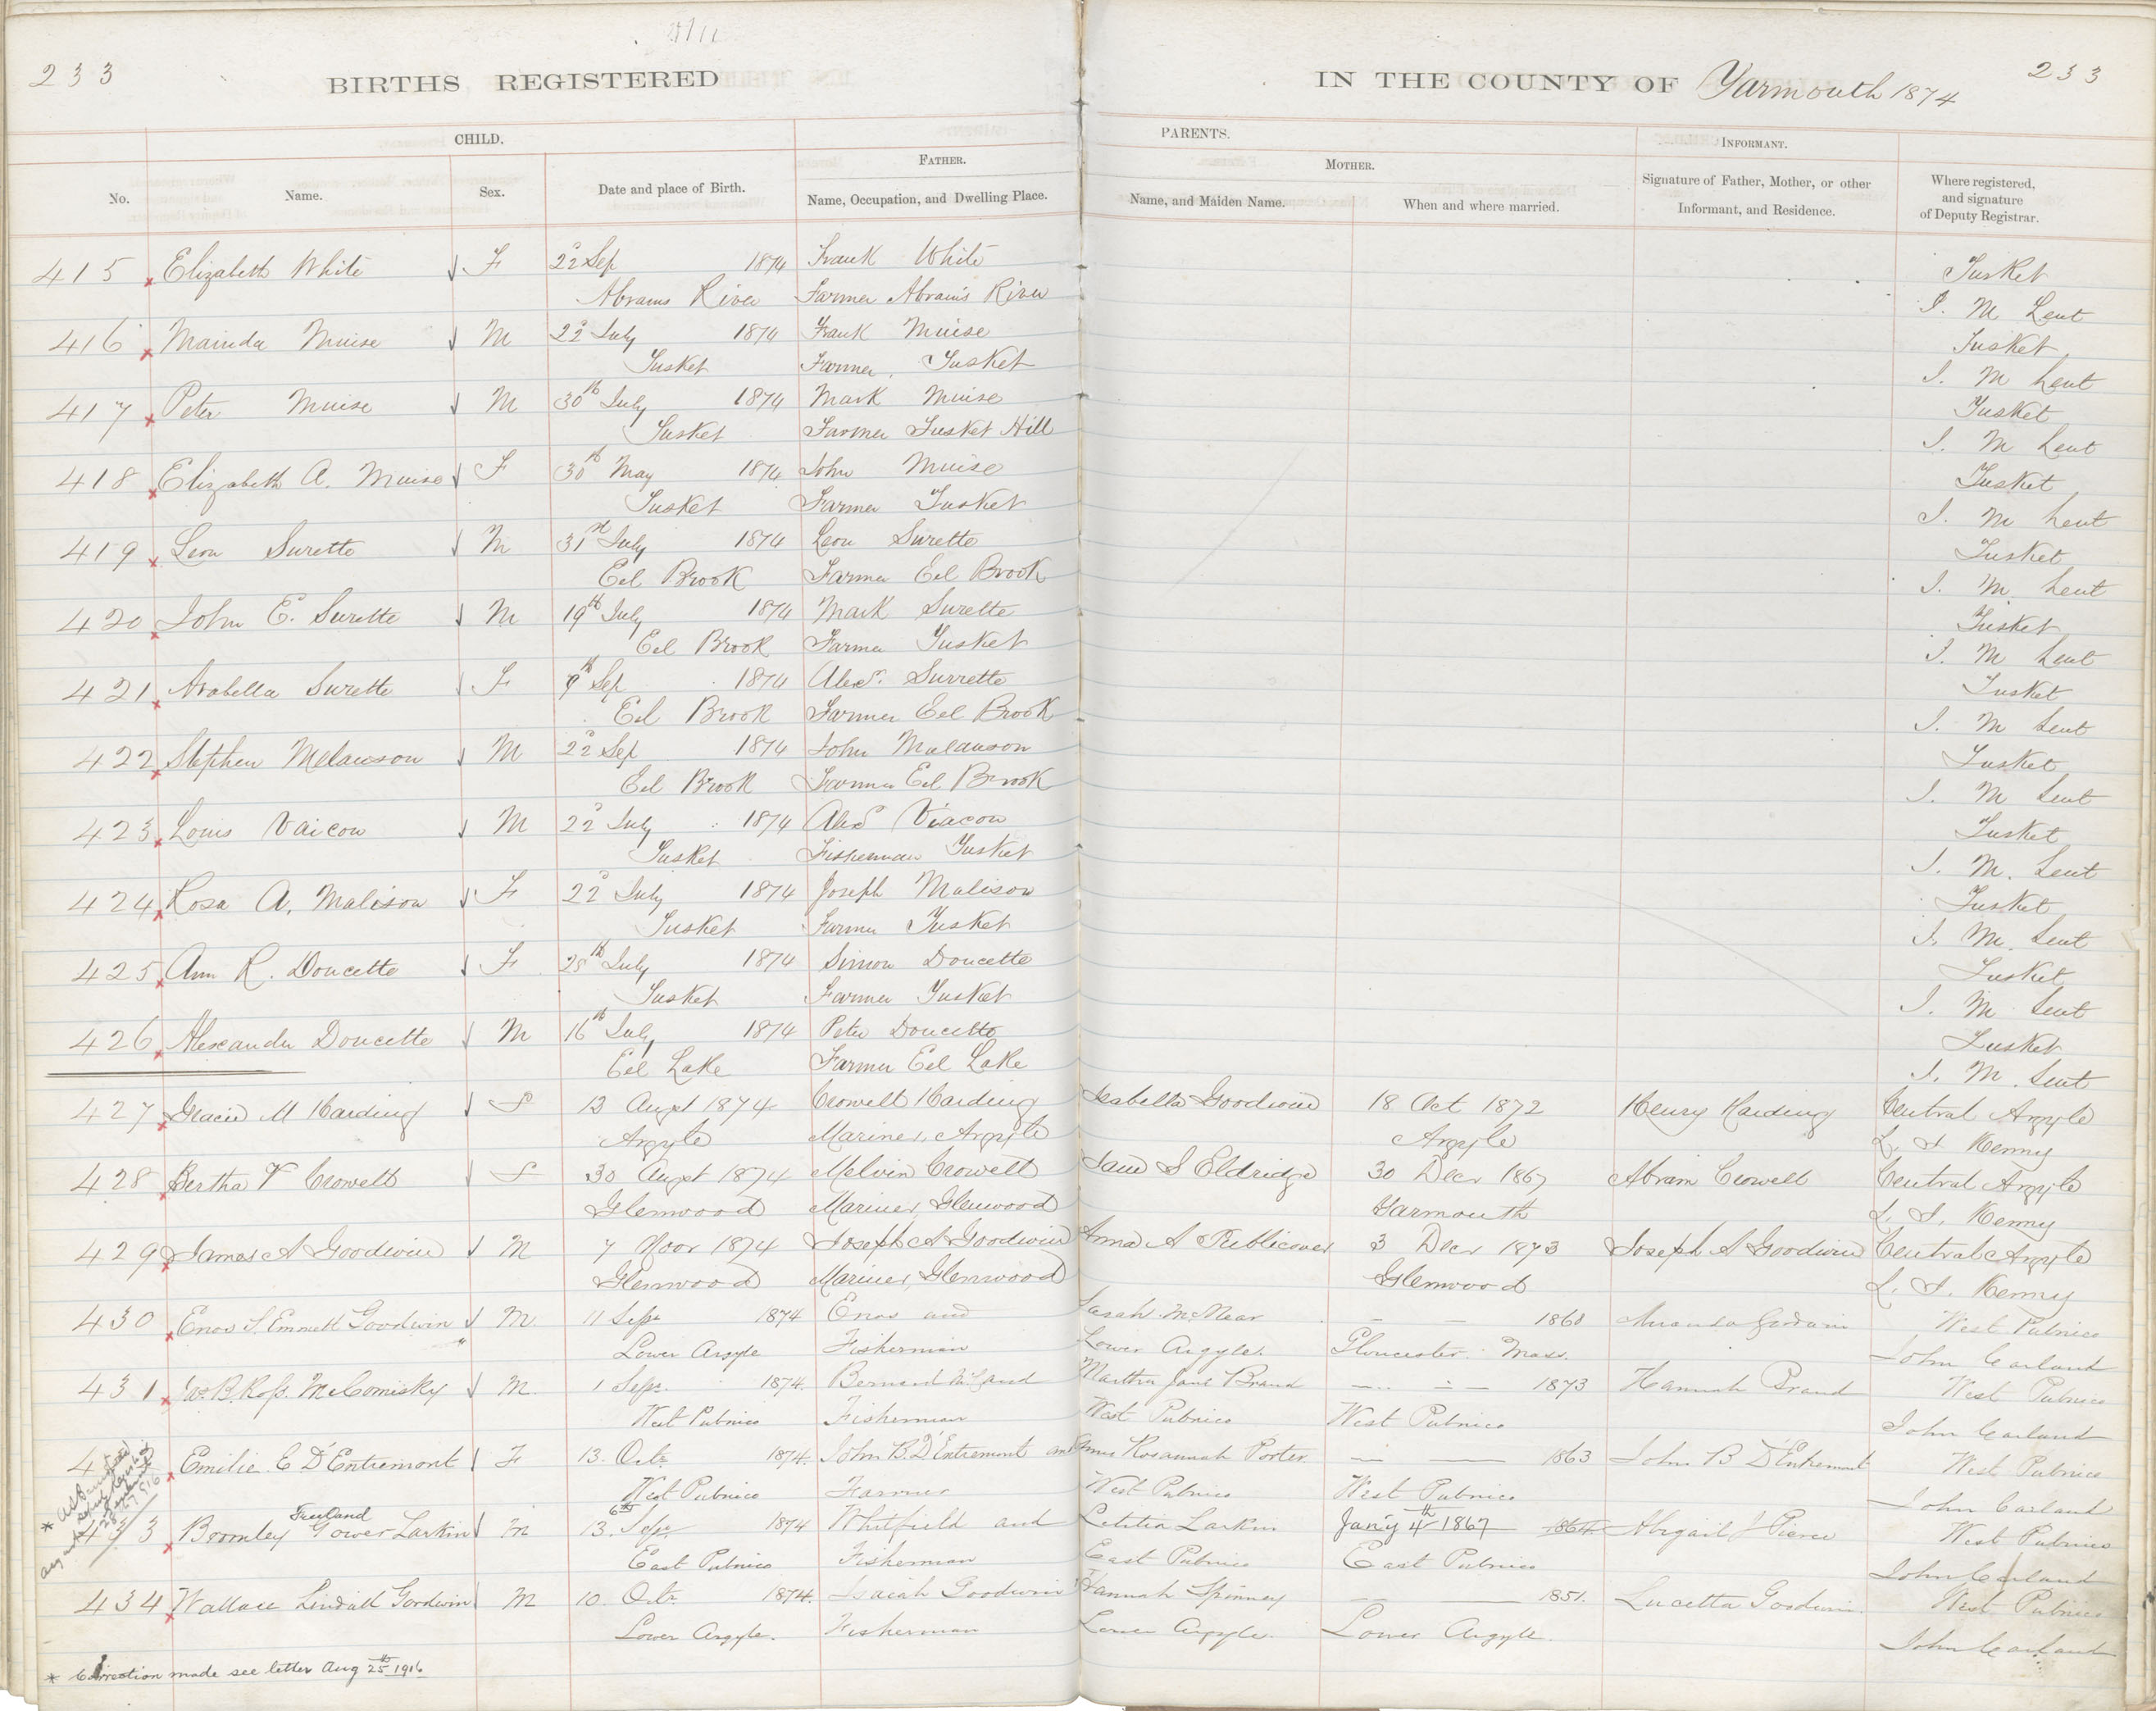 233
BIRTHS REGISTERED
IN THE COUNTY OF Yarmouth 1874
233
CHILD.
PARENTS.
No.
Name.
Sex.
Date and place of Birth.
FATHER.
Name, Occupation, and Dwelling Place.
MOTHER.
Name, and Maiden Name.
When and where married.
INFORMANT.
Signature of Father, Mother, or other
Informant, and Residence.
Where registered,
and signature
of Deputy Registrar.
415 Elizabeth White F 22° Sep 1874 Frank White Tusket
Abrams River Farmer Abram's River J. M Lent
416 Mainda Muise M 22° July 1874 Frank Muise Tusket
Tusket Farmer, Tusket J. M Lent
417 Peter Muise M 30th July 1874 Mark Muise Tusket
Tusket Farmer Tusket Hill J. M Lent
418 Elizabeth A. Muise F 30th May 1874 John Muise Tusket
Tusket Farmer Tusket J. M Lent
419 Leon Surette M 31st July 1874 Leon Surette Tusket
Eel Brook Farmer Eel Brook J. M. Lent
420 John E. Surette M 19th July 1874 Mark Surette Tusket
Eel Brook Farmer Tusket J. M Lent
421 Arabella Surette F 9th Sep 1874 Alexr. Surrette Tusket
Eel Brook Farmer Eel Brook J. M Lent
422 Stephen Melanson M 22° Sep 1874 John Mulanson Tusket
Eel Brook Farmer Eel Brook J. M Lent
423 Louis Vaicon M 22° July 1874 Alexr Viacon Tusket
Tusket Fisherman Tusket J. M. Lent
424 Rosa A. Malison F 22° July 1874 Joseph Malison Tusket
Tusket Farmer Tusket J. M. Lent
425 Ann R. Doucette F 28th July 1874 Simon Doucette Tusket
Tusket Farmer Tusket J. M Lent
426 Alexander Doucette M 16th July 1874 Peter Doucette Tusket
Eel Lake Farmer Eel Lake J. M. Lent
427 Gracie M Harding F 13 Augst 1874 Crowell Harding Isabella Goodwin 18 Oct 1872 Henry Harding Central Argyle
Argyle Mariner, Argyle Argyle Kenny
428 Bertha V Crowell F 30 Augst 1874 Melvin Crowell Jane S Eldridge 30 Decr 1867 Abram Crowell Central Argyle
Glenwood Mariner, Glenwood Yarmouth Kenny
429 James A Goodwin M 7 Novr 1874 Joseph A Goodwin Anna A Publicover 3 Decr 1873 Joseph A Goodwin Central Argyle
Glenwood Mariner, Glenwood Glenwood Kenny
430 Enos S. Emmett Goodwin M 11 Sepr 1874 Enos and Sarah McNear — — 1860 West Pubnico
Lower Argyle Fisherman Lower Argyle. Gloucester. Mass. John Carland
431 Ross. McComisky M. 1 Sepr. 1874. Bernard and Martha Jane Brand — — 1873 Hannah Brand West Pubnico
West Pubnico Fisherman West Pubnico West Pubnico John Carland
Emilie. E D'Entremont F 13. Octr 1874. John B. D'Entremont and Rosannah Porter — — 1863 John B D'Entremont West Pubnico
West Pubnico Farmer West Pubnico West Pubnico John Carland
* 433 Bromley Freeland Gower Larkin M 6th 13. Sepr 1874 Whitfield and Letitia Larkin Jan'y 4th 1867 1864 Abigail J Pierce West Pubnico
East Pubnico Fisherman East Pubnico East Pubnico John Carland
434 Wallace Lindall Goodwin M 10. Octr 1874. Isaiah Goodwin Hannah Spinney — — 1851. Lucetta Goodwin. West Pubnico
Lower Argyle. Fisherman Lower Argyle. Lower Argyle. John Carland
* Correction made see letter Aug 25th 1916